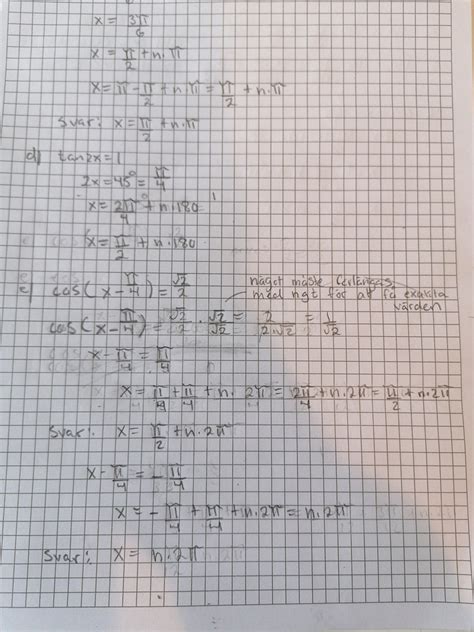 x = 3π/6
x = π/2 + n·π
x = π - π/2 + n·π = π/2 + n·π
svar: x = π/2 + n·π
d) tan2x = 1
2x = 45° = π/4
x = 2π/4 + n·180°
x = π/2 + n·180
e) cos(x - π/4) = √2/2
något måste förlängas
med ngt för att få exakta
värden
cos(x - π/4) = √2/2 · √2/√2 = 2/2·√2 = 1/√2
x - π/4 = π/4
x = π/4 + π/4 + n·2π = 2π/4 + n·2π = π/2 + n·2π
svar: x = π/2 + n·2π
x - π/4 = - π/4
x = - π/4 + π/4 + n·2π = n·2π
svar: x = n·2π